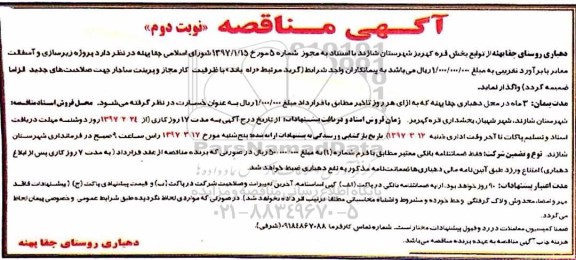 آگهی مناقصه «نوبت دوم»
دهیاری روستای جفا پهنه از توابع بخش قره کهریز شهرستان شازند با استناد به مجوز شماره ۵ مورخ ۱۳۹۷/۱/۱۵ شورای اسلامی جفا پهنه در نظر دارد پروژه زیرسازی و آسفالت
معابر با برآورد تقریبی به مبلغ ریال می‌باشد به پیمانکاران واجد شرایط (گرید مرتبط «راه باند» با ظرفیت کار مجاز و پرینت ساجار جهت صلاحیت‌های جدید الزاما
ضمیمه گردد) واگذار نماید.
مدت پیمان: ۳ ماه در محل دهیاری جفا پهنه که به ازای هر روز تاخیر مطابق با قرارداد مبلغ ۱/۰۰۰/۰۰۰ ریال به عنوان خسارت در نظر گرفته می‌شود. محل فروش اسناد مناقصه:
شهرستان شازند، شهر شهباز، بخشداری قره کهریز. زمان فروش اسناد و دریافت پیشنهادات: از تاریخ درج آگهی به مدت ۱۷ روز کاری (از ۲۴ ۲ ۱۳۹۷ روز دوشنبه مهلت دریافت
اسناد و تسلیم پاکات تا آخر وقت اداری شنبه ۱۲ ۳ ۱۳۹۷) تاریخ بازگشایی و رسیدگی به پیشنهادات ارائه شده: پنج شنبه مورخ ۱۷ ۳ ۱۳۹۷ راس ساعت ۹ صبح در فرمانداری شهرستان
شازند. نوع و تضمین شرکت: فقط ضمانتنامه بانکی معتبر مطابق با فرم شماره (۱) به مبلغ ریال در صورتی که برنده مناقصه از عقد قرارداد (به مدت ۷ روز کاری پس از ابلاغ
دهیاری) امتناع ورزد طبق آیین نامه مالی دهیاری‌ها ضمانت‌نامه مذکور به نفع دهیاری ضبط خواهد شد.
مدت اعتبار پیشنهادات: ۹۰ روز خواهد بود. ارائه ضمانتنامه بانکی در پاکت (الف) کپی اساسنامه، آخرین تغییرات و صلاحیت شرکت در پاکت (ب) و قیمت پیشنهادی پاکت (ج) (پیشنهادات فاقد
مهر و امضاء، مخدوش و لاک گرفتگی و خط خورده و مشروط و اشتباه محاسباتی مطلقا ترتیب اثر داده نخواهد شد) در صورتی که مواردی لحاظ نگردیده طبق شرایط عمومی و خصوصی پیمان لحاظ
می‌گردد.
ضمنا کمیسیون معاملات در رد و قبول پیشنهادات مختار است. شماره تماس کارفرما ۰۹۱۸۴۸۶۷۰۸۸ (شرفی).
هزینه چاپ آگهی مناقصه به عهده برنده مناقصه می‌باشد.
دهیاری روستای جفا پهنه
ParsNamadData
پایگاه اطلاع رسانی مناقصه و مزایده
۰۲۱-۸۸۳۴۹۶۷۰-۵